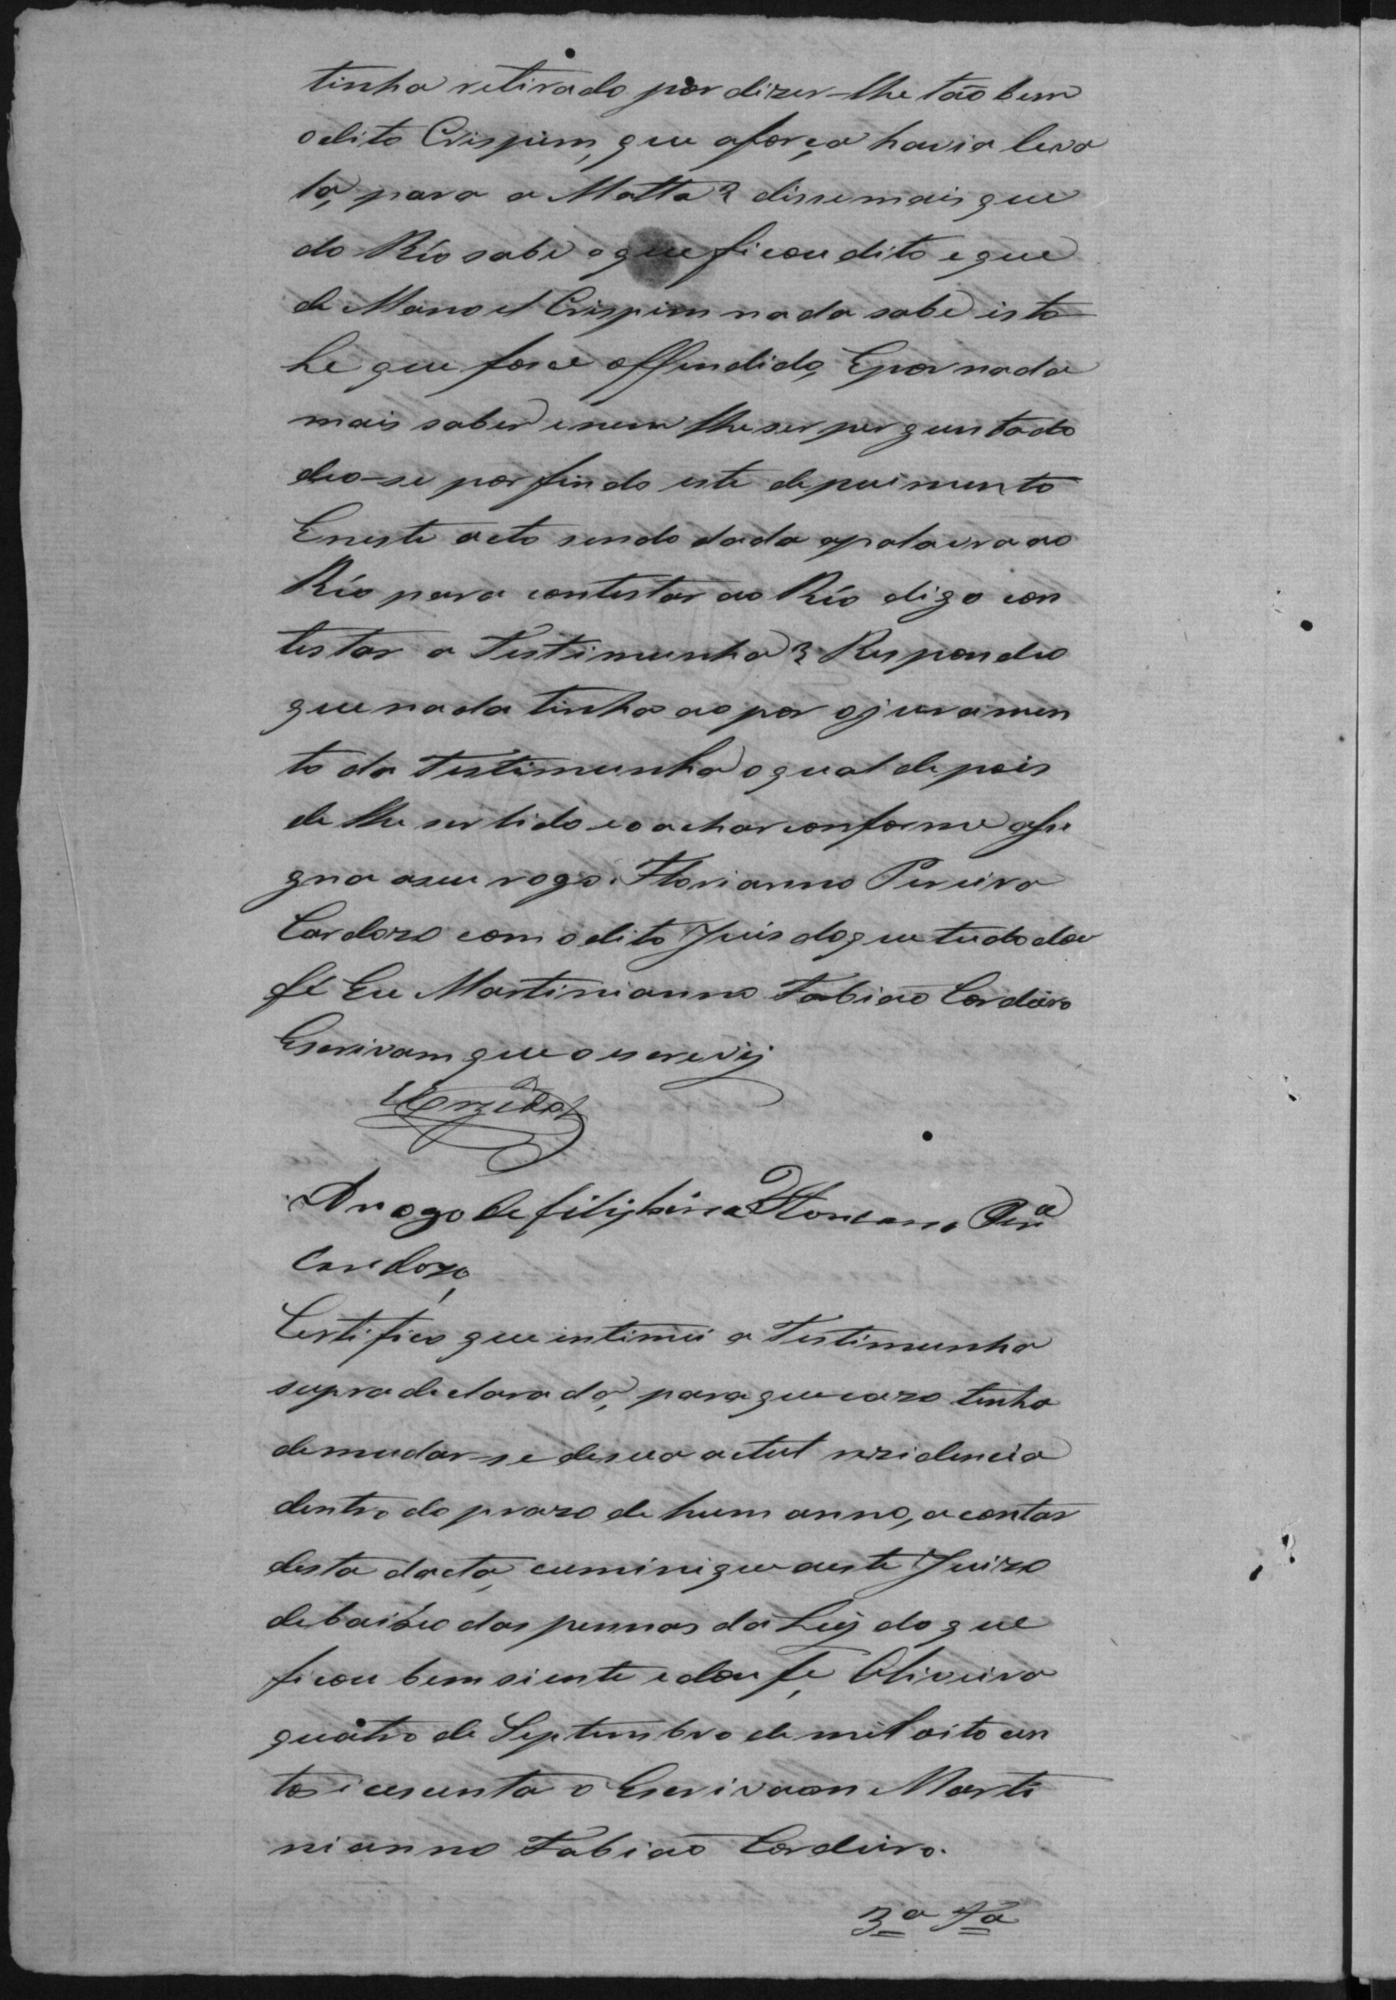 tinha retirado por dizer-lhe tão bem
o dito Crispim, que a força havia leva
la, para a Matta? disse mais que
do Réo sabe o que ficou dito e que
de Manoel Crispim nada sabe isto
he que fosse offendido, E por nada
mais saber e nem lhe ser perguntado
deo-se por findo este depuimento
E neste acto sendo dada a palavra ao
Réo para contestar ao Réo digo con
testar a Testimunha? Respondeo
que nada tinha ao por o juramen
to da Testimunha o qual depois
de lhe ser lido e o achar conforme assi
gna a seu rogo Florianno Pereira
Cardozo com o dito Juis do que tudo dou
fé Eu Martinianno Fabiao Cordeiro
Escrivam que o escrevij
A rogo de Florianno Per.ª
Cardozo,
Certifico que intimei a Testimunha
supra declarada, para que cazo tenha
de mudar-se de sua actual rezidencia
dentro do prazo de hum anno, a contar
desta dacta, cuminique a este Juizo
debaixo das pennas da Leij do que
ficou bem siente e dou fé, Oliveira
quatro de Septembro de mil oito cen
tos i cesenta o Escrivaon Marti
nianno Fabiao Cordeiro.
3ª Tª